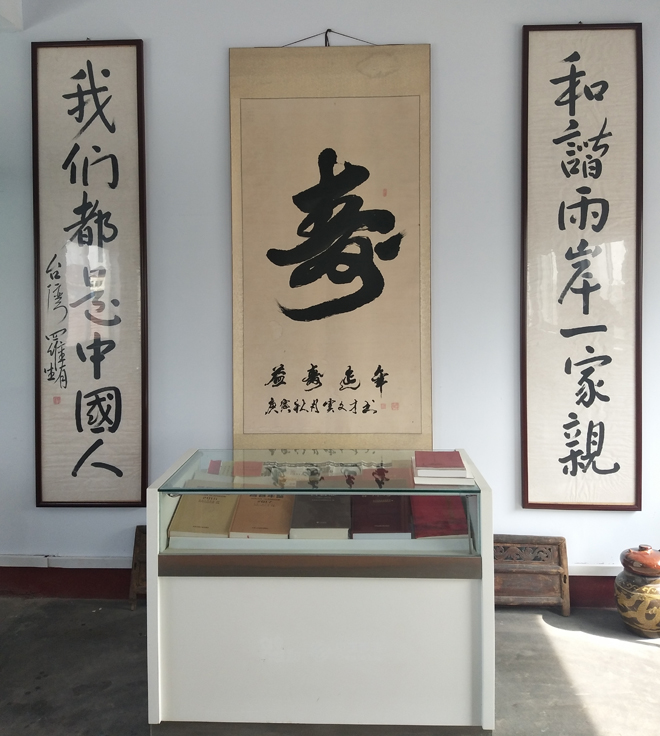 和諧兩岸一家親
寿
益寿延年
庚寅秋月雲文才书
我们都是中國人
台灣